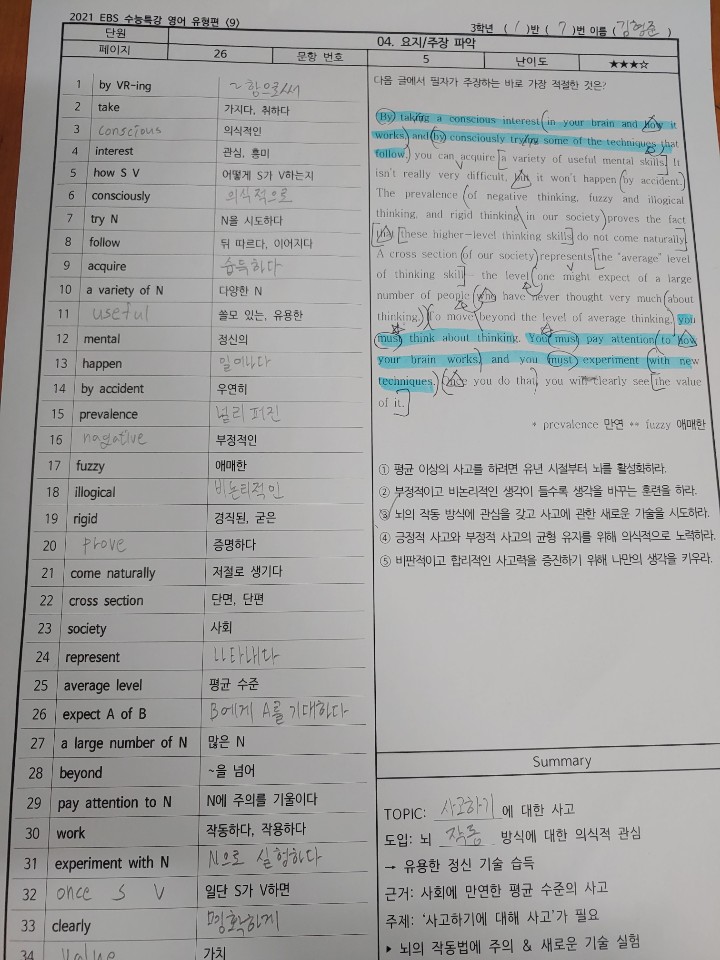 2021 EBS 수능특강 영어 유형편 〈9〉
3학년 ( 1 )반 ( 7 )번 이름 ( 김형준 )
단원 04. 요지/주장 파악
페이지 26 문항 번호 5 난이도 ★★★☆
1 by VR-ing ~함으로써
2 take 가지다, 취하다
3 conscious 의식적인
4 interest 관심, 흥미
5 how S V 어떻게 S가 V하는지
6 consciously 의식적으로
7 try N N을 시도하다
8 follow 뒤 따르다, 이어지다
9 acquire 습득하다
10 a variety of N 다양한 N
11 useful 쓸모 있는, 유용한
12 mental 정신의
13 happen 일어나다
14 by accident 우연히
15 prevalence 널리 퍼진
16 nagative 부정적인
17 fuzzy 애매한
18 illogical 비논리적인
19 rigid 경직된, 굳은
20 prove 증명하다
21 come naturally 저절로 생기다
22 cross section 단면, 단편
23 society 사회
24 represent 나타내다
25 average level 평균 수준
26 expect A of B B에게 A를 기대하다
27 a large number of N 많은 N
28 beyond ~을 넘어
29 pay attention to N N에 주의를 기울이다
30 work 작동하다, 작용하다
31 experiment with N N으로 실험하다
32 once S V 일단 S가 V하면
33 clearly 명확하게
34 value 가치
다음 글에서 필자가 주장하는 바로 가장 적절한 것은?
By taking a conscious interest in your brain and how it
works, and by consciously trying some of the techniques that
follow, you can acquire a variety of useful mental skills. It
isn't really very difficult, but it won't happen by accident.
The prevalence of negative thinking, fuzzy and illogical
thinking, and rigid thinking in our society proves the fact
that these higher-level thinking skills do not come naturally.
A cross section of our society represents the "average" level
of thinking skill — the level one might expect of a large
number of people who have never thought very much about
thinking. To move beyond the level of average thinking, you
must think about thinking. You must pay attention to how
your brain works, and you must experiment with new
techniques. Once you do that, you will clearly see the value
of it.
* prevalence 만연 ** fuzzy 애매한
① 평균 이상의 사고를 하려면 유년 시절부터 뇌를 활성화하라.
② 부정적이고 비논리적인 생각이 들수록 생각을 바꾸는 훈련을 하라.
③ 뇌의 작동 방식에 관심을 갖고 사고에 관한 새로운 기술을 시도하라.
④ 긍정적 사고와 부정적 사고의 균형 유지를 위해 의식적으로 노력하라.
⑤ 비판적이고 합리적인 사고력을 증진하기 위해 나만의 생각을 키우라.
Summary
TOPIC: 사고하기 에 대한 사고
도입: 뇌 작동 방식에 대한 의식적 관심
→ 유용한 정신 기술 습득
근거: 사회에 만연한 평균 수준의 사고
주제: '사고하기에 대해 사고'가 필요
▸ 뇌의 작동법에 주의 & 새로운 기술 실험